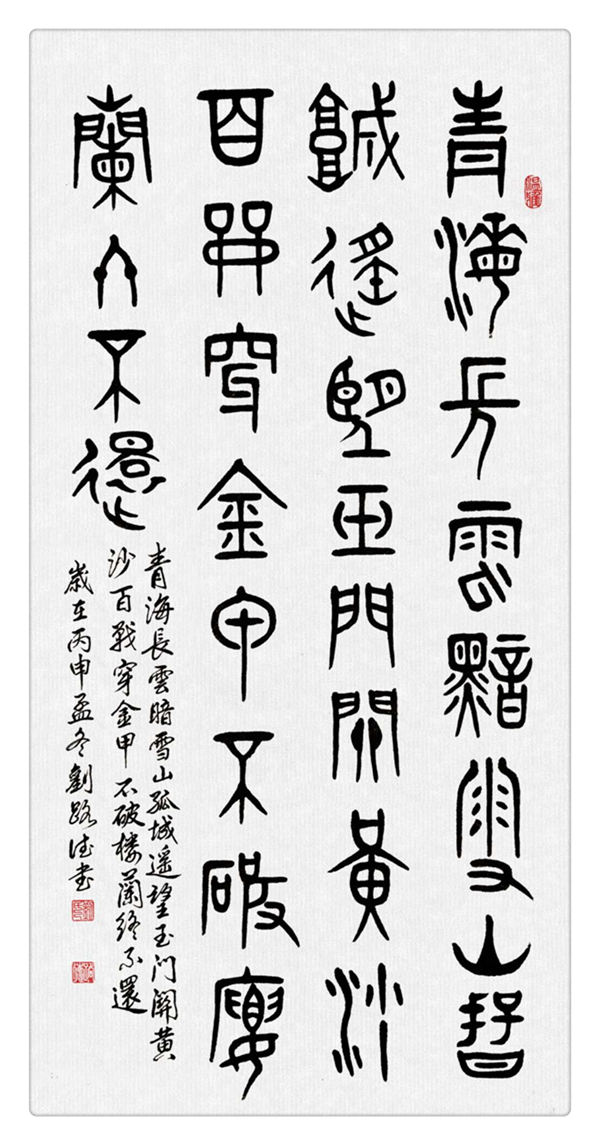 青海長雲黯雪山孤
城遙望玉門關黃沙
百戰穿金甲不破樓
蘭終不還
青海長雲暗雪山孤城遥望玉门關黄
沙百戰穿金甲不破楼蘭终不還
歲在丙申孟冬劉路書